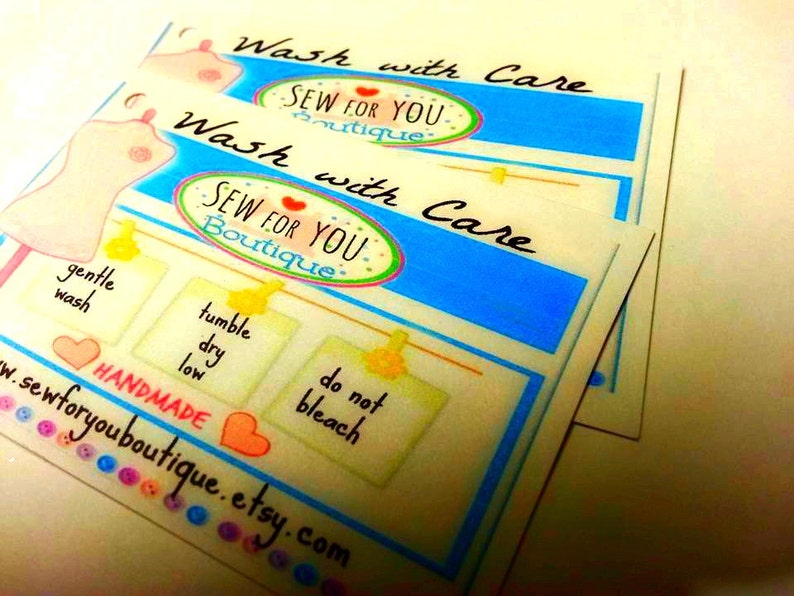 Wash with Care
SEW FOR YOU
Boutique
Wash with Care
SEW FOR YOU
Boutique
gentle
wash
tumble
dry
low
do not
bleach
HANDMADE
www.sewforyouboutique.etsy.com